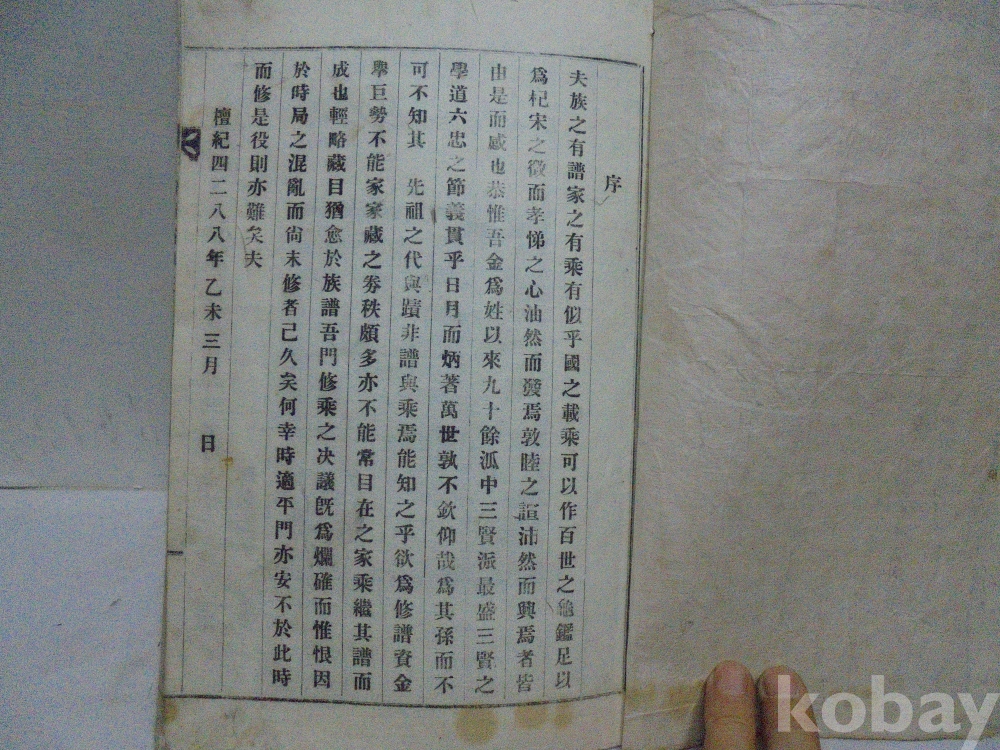 序
夫族之有譜家之有乘有似乎國之載乘可以作百世之龜鑑足以
爲杞宋之徵而孝悌之心油然而發焉敦睦之誼沛然而興焉者皆
由是而感也恭惟吾金爲姓以來九十餘派中三賢派最盛三賢之
學道六忠之節義貫乎日月而炳著萬世孰不欽仰哉爲其孫而不
可不知其 先祖之代與蹟非譜與乘焉能知之乎欲爲修譜資金
擧巨勢不能家家藏之券秩頗多亦不能常目在之家乘繼其譜而
成也輕略藏目猶愈於族譜吾門修乘之決議旣爲爛確而惟恨因
於時局之混亂而尙未修者已久矣何幸時適平門亦安不於此時
而修是役則亦難矣夫
檀紀四二八八年乙未三月 日
kobay